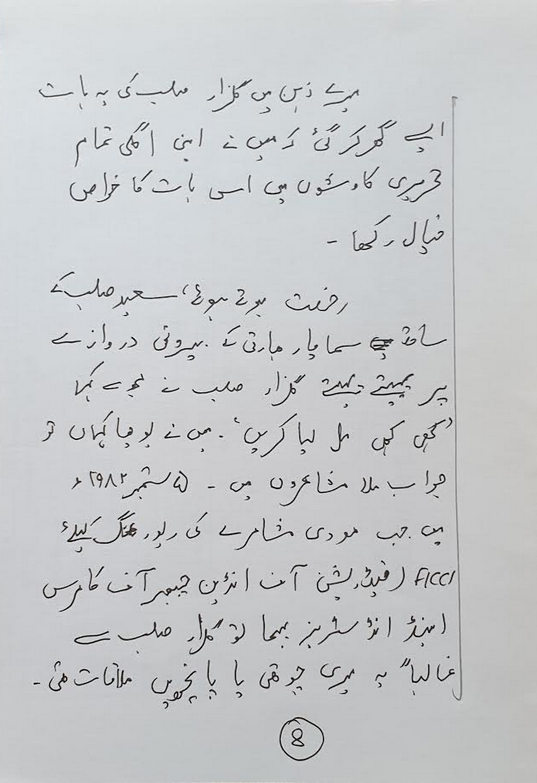 میرے ذہن میں گلزار صاحب کی یہ بات
ایسے گھر کر گئی کہ میں نے اپنی اگلی تمام
تحریری کاوشوں میں اسی بات کا خاص
خیال رکھا -
رخصت ہوتے ہوئے، سعید صاحب کے
ساتھ سماچار بھارتی کے بیرونی دروازے
پر پہنچتے پہنچتے گلزار صاحب نے مجھ سے کہا
'کبھی کبھی مل لیا کریں'۔ میں نے پوچھا کہاں تو
جواب ملا مشاعروں میں - ستمبر ۱۹۸۲ء
میں جب مودی مشاعرے کی رپورٹنگ کیلئے
FICCI (فیڈریشن آف انڈین چیمبر آف کامرس
اینڈ انڈسٹریز پہنچا تو گلزار صاحب سے
غالباً یہ میری چوتھی یا پانچویں ملاقات تھی -
8